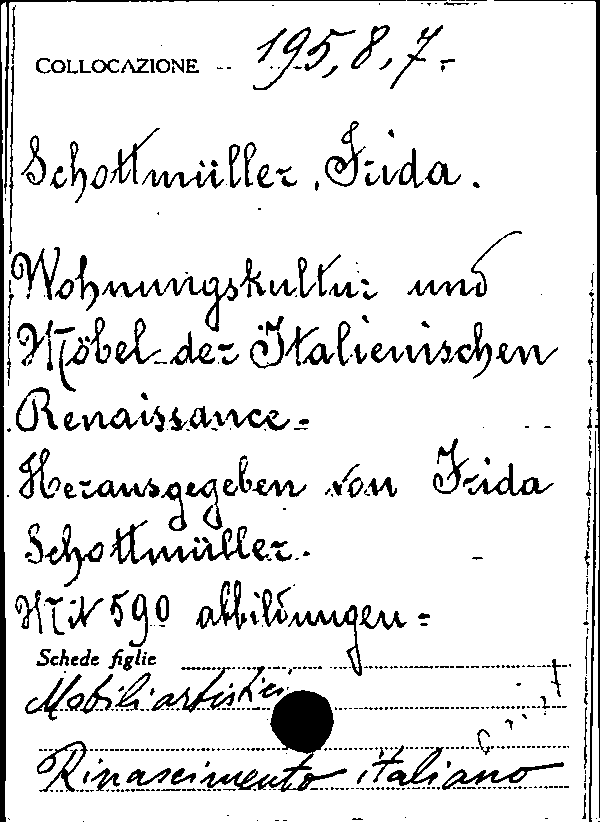 COLLOCAZIONE -- 195, 8, 7. -
Schottmüller, Frida.
Wohnungskultur und
Möbel der Italienischen
Renaissance. -
Herausgegeben von Frida
Schottmüller. -
Mit 590 abbildungen =
Schede figlie
Mobili artistici
Rinascimento italiano